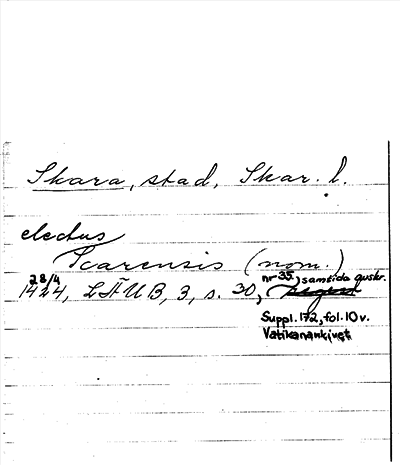 Skara, stad, Skar. l.
electus
Scarensis (nom.)
28/4 nr 35, samtida avskr.
1424, LÄUB, 3, s. 30,
Suppl. 172, fol. 10 v.
Vatikanarkivet